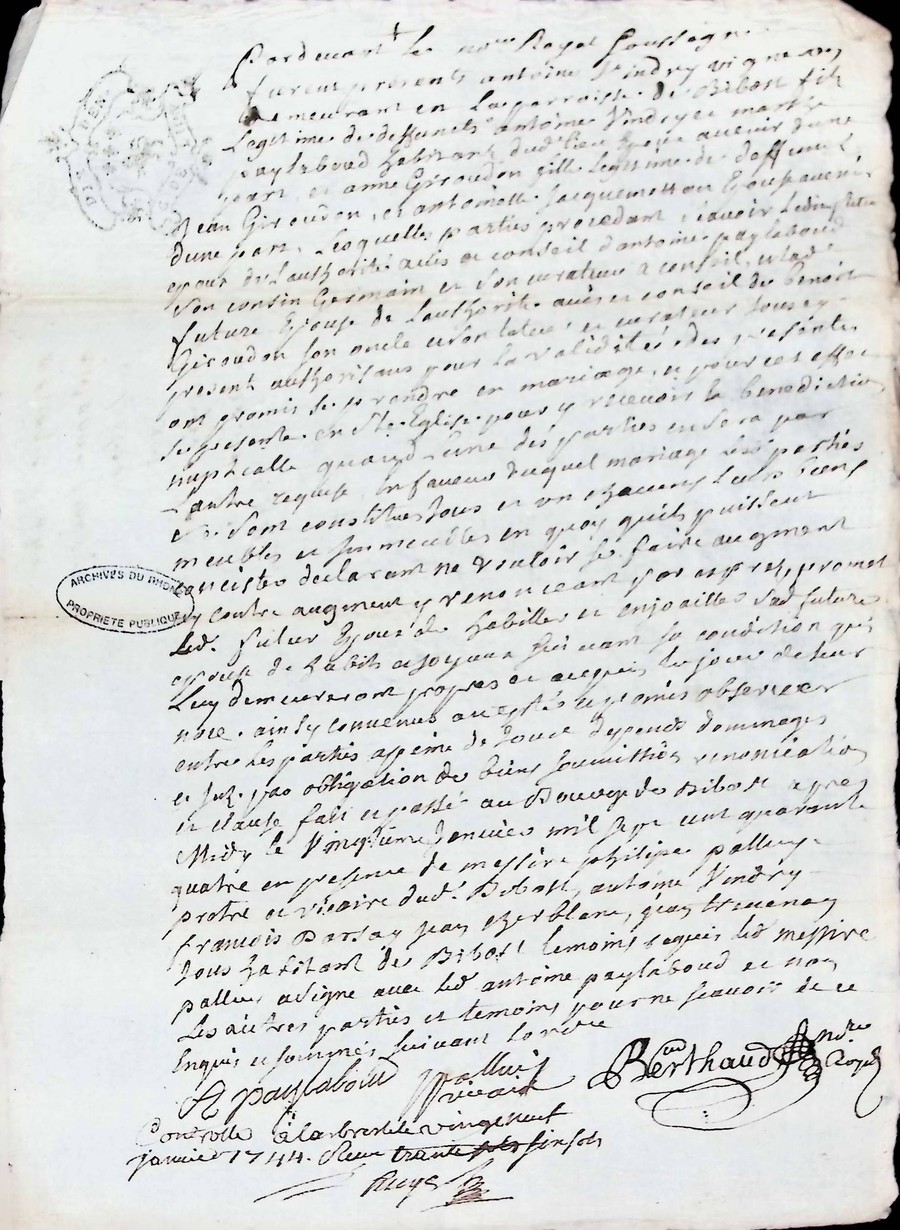 Pardevant le no.re Royal Soussigne
furent presents antoine Vindry vigneron
demeurant en La parroisse de Bibost fils
Legitime de deffuncts antoine Vindry et
paylaboud habitant dud. lieu Epoux avenir dune
part, et anne Giroudon fille Legitime de deffunct
Jean Giroudon, et antoinette Jacquemetton Epouse avenir
dune part, Lesquelles parties procedant scavoir Ledit futur
epoux de Lauthorité avis et conseil d'antoine paylaboud
Son cousin Germain et Son curateur a conseil, et lad.
future Epouse de Lauthorité avis et conseil de Benoit
Giroudon Son oncle et Son tuteur et curateur tous cy
present authorisans pour la validité des presentes
ont promis se prendre en mariage, et pour cet effet
Se presenter en Ste Eglise pour y recevoir la benediction
nuptialle quand L'une des parties en Sera par
L'autre requise, En faveur duquel mariage Les parties
Se Sont constitués tous et un chacuns Leurs biens
meubles et immeubles en quoy qu'ils puissent
concister declarant ne vouloir Se faire augment
ny contre augment y renonceant par exprés, promet
Led. futur Epoux de habiller et enjoailler Sad. future
epouse de habits et joyaux Suivant Sa condition qui
Luy demeureront propres et acquis du jour de leur
noce. ainsy convenus acceptés et promis observer
entre Les parties appeine de tous depends dommages
et int. par obligation de biens Soumission renonciation
et clause fait et passé au Bourg de Bibost apres
Midy le vingtieme Janvier mil sept cent quarante
quatre en presence de messire philipe palluy
pretre et vicaire dud. Bibost, antoine Vindry
francois jean
tous habitant de Bibost temoins requis led. messire
palluy a signe avec led. antoine paylaboud et non
Les autres parties et temoins pour ne scavoir de ce
Enquis et sommés Suivant Lordre
A paylaboud palluy vicaire Berthaud no.re Royal
Controllé à Larbresle le vingt neuf
janvier 1744. Reçu trante six sols
ARCHIVES DU RHONE
PROPRIÉTÉ PUBLIQUE